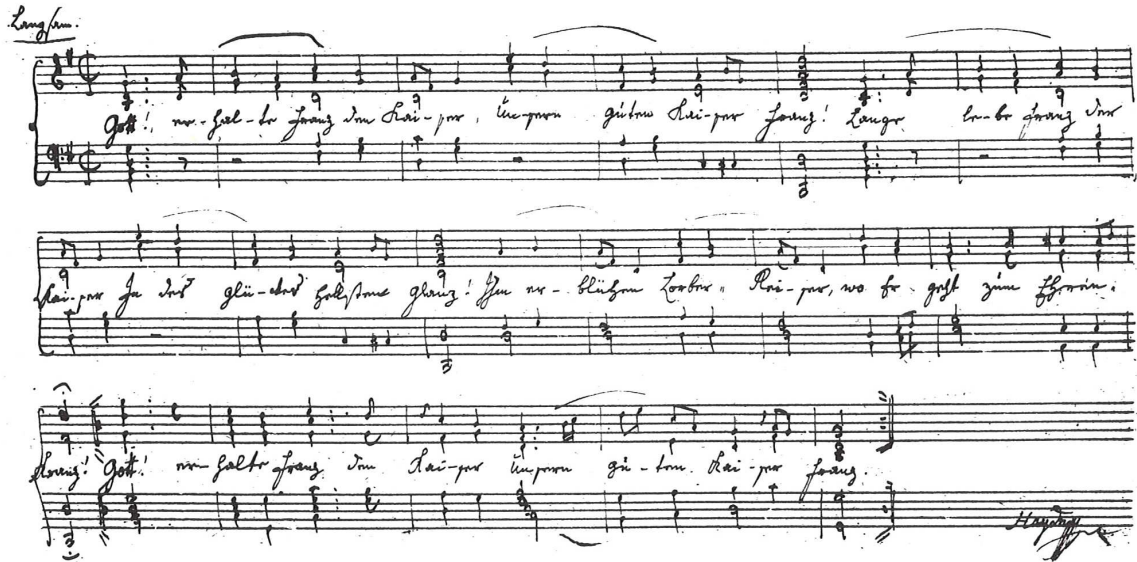 Langsam.
Gott! er--hal--te Franz den Kai--ser, Unsern guten Kai-ser Franz! Lange le--be Franz der
Kai-ser In des Glü--ckes hellstem Glanz! Ihm er--blühen Lorber= Rei-ser, wo Er geht zum Ehren=
Kranz! Gott! er--halte Franz den Kai--ser Unsern gu--ten Kai-ser Franz.
Haydn